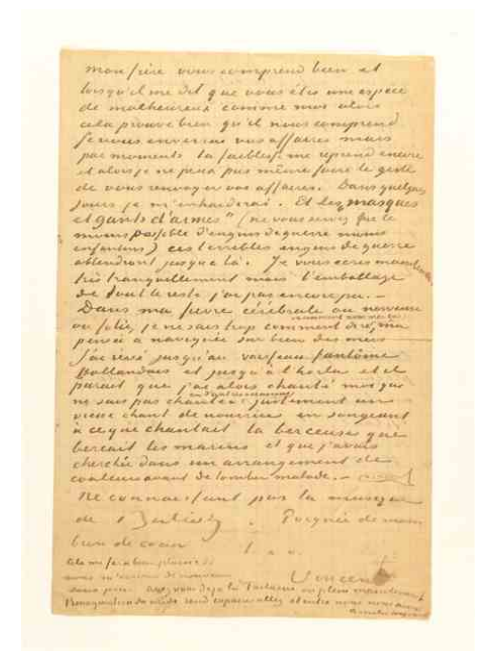 mon frère vous comprend bien et
lorsqu'il me dit que vous êtes une espèce
de malheureux comme moi alors
cela prouve bien qu'il nous comprend
Je vous enverrai vos affaires mais
par moments la faiblesse me reprend encore
et alors je ne peux pas même faire le geste
de vous renvoyer vos affaires. Dans quelques
jours je m'enhardirai. Et les "masques
et gants d'armes" (ne vous servez que le
moins possible d'engins de guerre moins
enfantins) ces terribles engins de guerre
attendront jusque là. Je vous écris maintenant
très tranquillement mais l'emballage
de tout le reste j'ai pas encore pu. —
Dans ma fièvre cérébrale ou nerveuse
ou folie, je ne sais trop comment dire, ma
pensée a navigué sur bien des mers
J'ai rêvé jusqu'au vaisseau fantôme
Hollandais et jusqu'à l'horla et il
paraît que j'ai alors chanté moi qui
ne sais pas chanter en d'autres occasions justement un
vieux chant de nourrice en songeant
à ce que chantait la berceuse qui
berçait les marins et que j'avais
cherchée dans un arrangement de
couleurs avant de tomber malade. —
Ne connaissant pas la musique
de Berlioz. Poignée de main
bien de cœur t. a. v.
Cela me fera bien plaisir si
vous m'écrivez de nouveau Vincent
sous peu. avez vous déjà lu Tartarin en plein maintenant
l'imagination du midi rend copains allez et entre nous nous avons